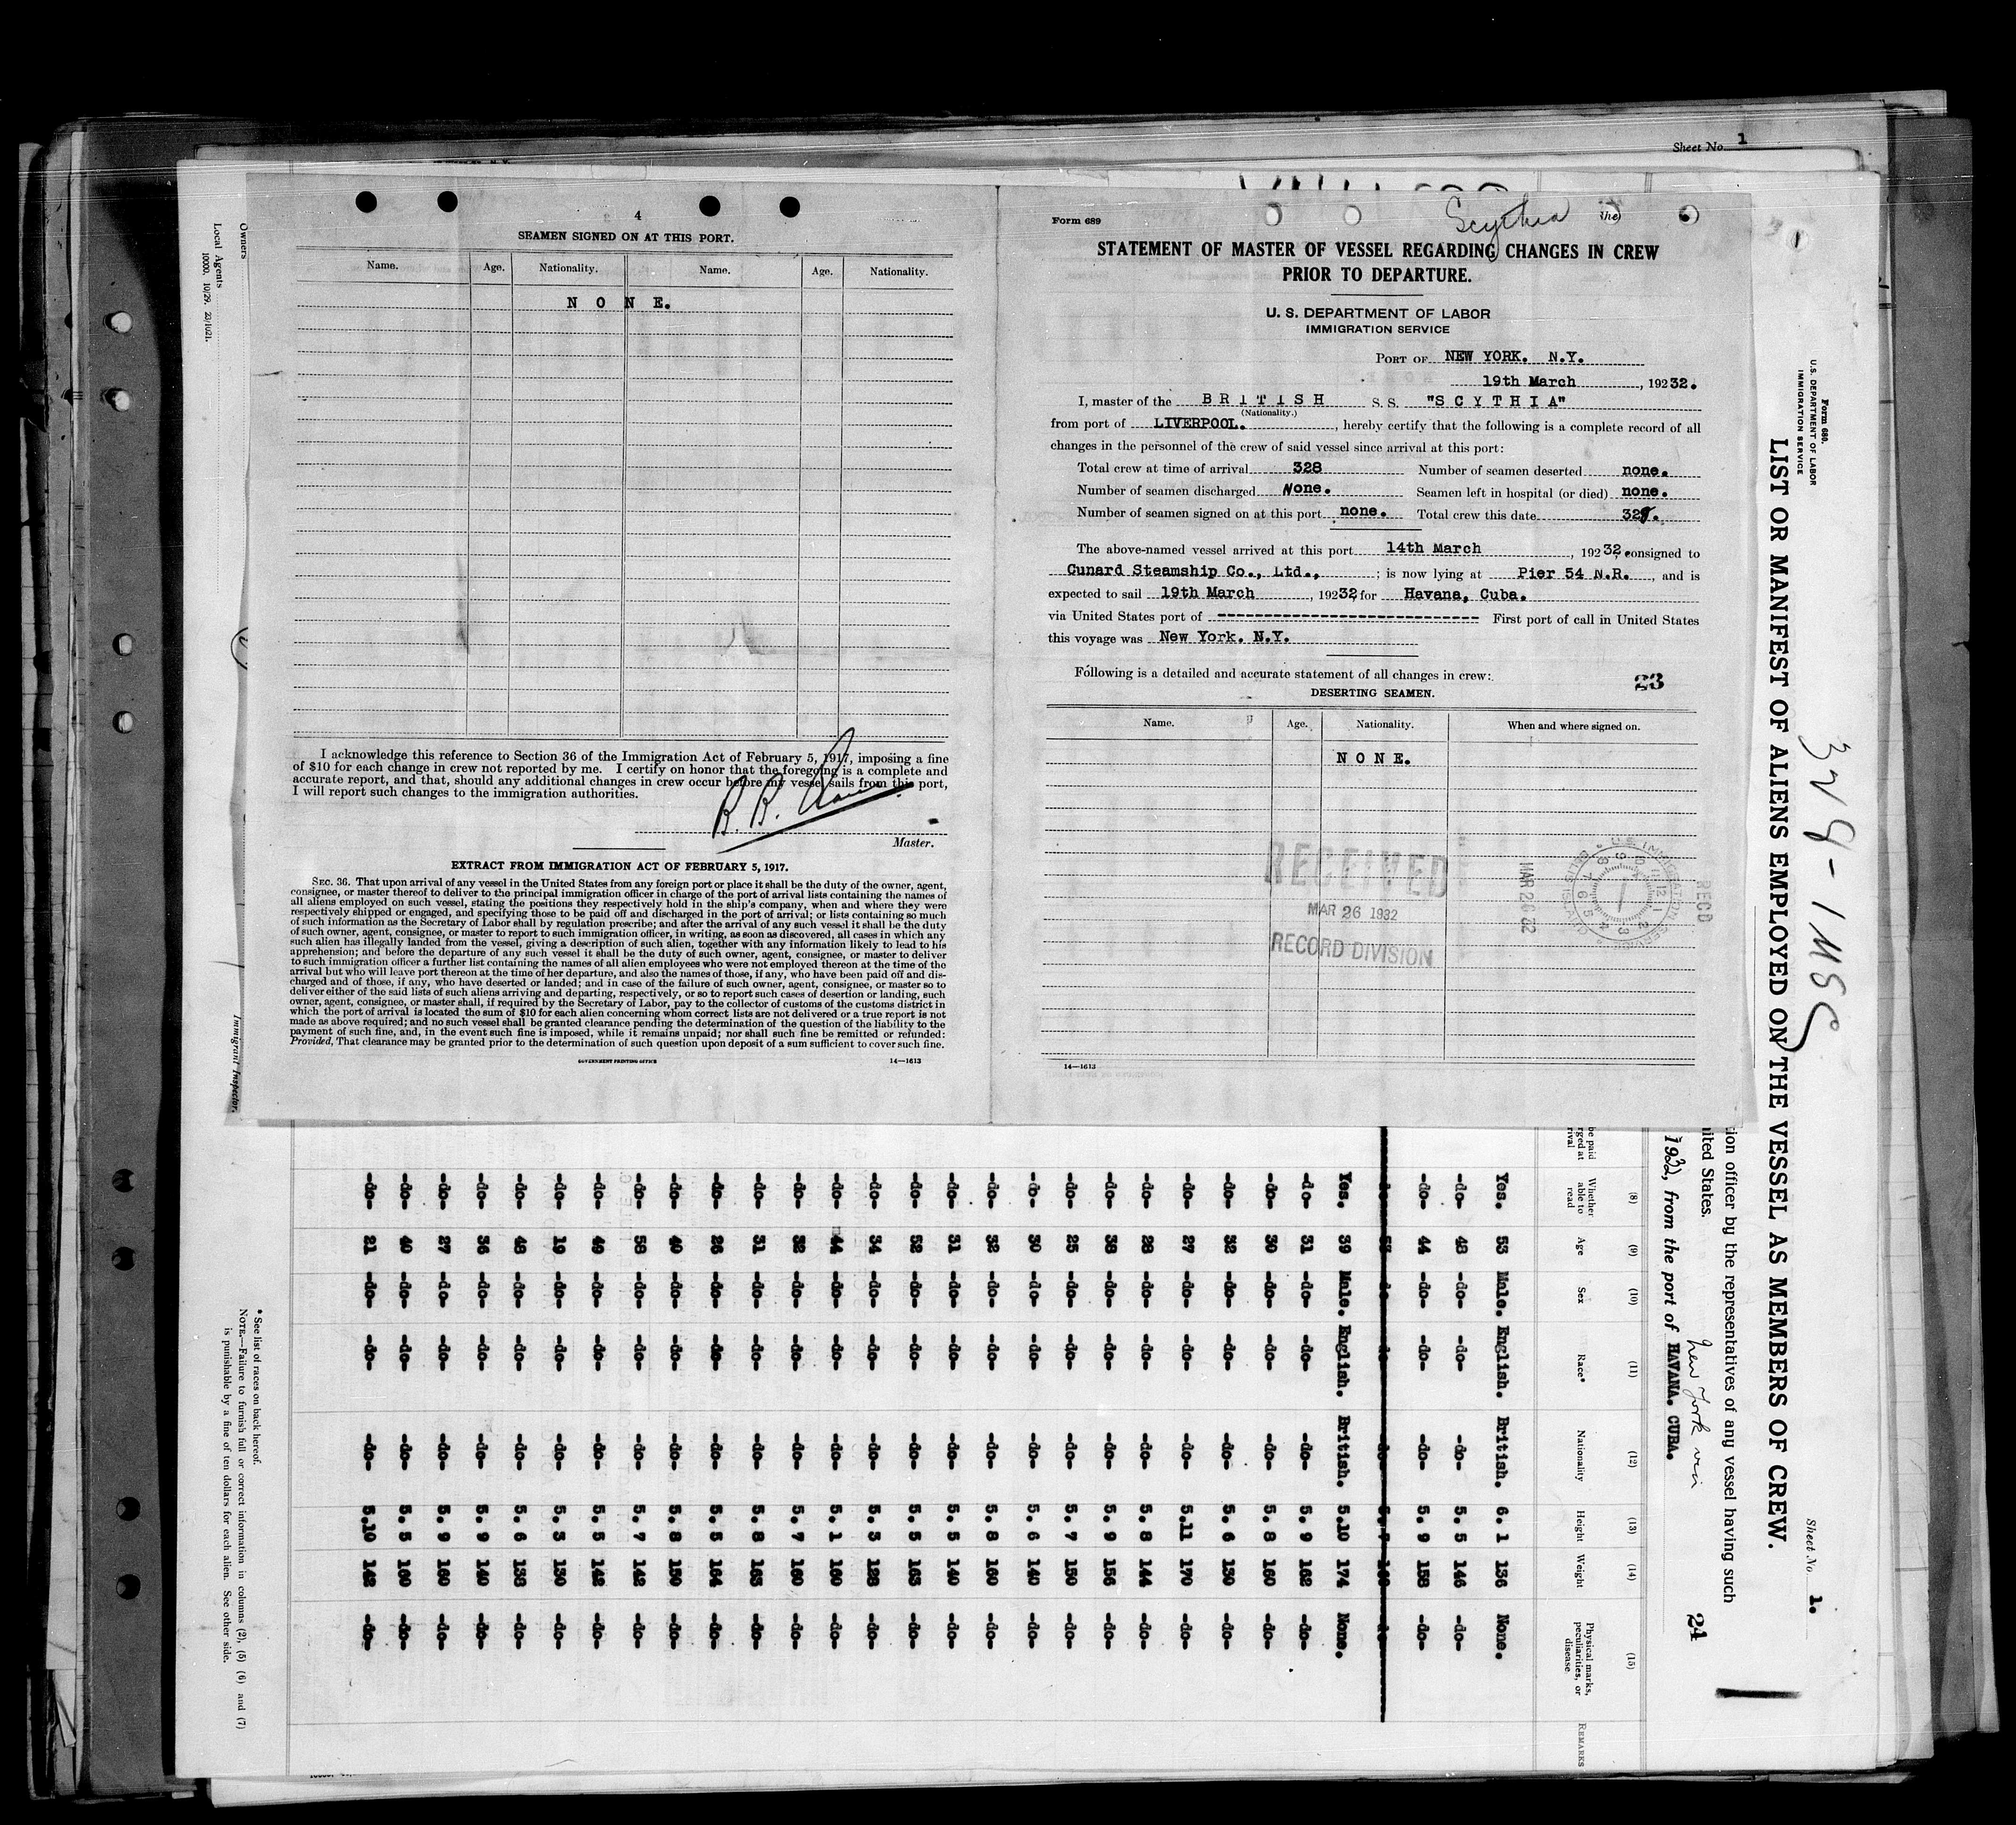 Sheet No. 1
4
SEAMEN SIGNED ON AT THIS PORT.
Name. Age. Nationality. Name. Age. Nationality.
N O N E.
I acknowledge this reference to Section 36 of the Immigration Act of February 5, 1917, imposing a fine
of $10 for each change in crew not reported by me. I certify on honor that the foregoing is a complete and
accurate report, and that, should any additional changes in crew occur before my vessel sails from this port,
I will report such changes to the immigration authorities.
Master.
EXTRACT FROM IMMIGRATION ACT OF FEBRUARY 5, 1917.
SEC. 36. That upon arrival of any vessel in the United States from any foreign port or place it shall be the duty of the owner, agent,
consignee, or master thereof to deliver to the principal immigration officer in charge of the port of arrival lists containing the names of
all aliens employed on such vessel, stating the positions they respectively hold in the ship's company, when and where they were
respectively shipped or engaged, and specifying those to be paid off and discharged in the port of arrival; or lists containing so much
of such information as the Secretary of Labor shall by regulation prescribe; and after the arrival of any such vessel it shall be the duty
of such owner, agent, consignee, or master to report to such immigration officer, in writing, as soon as discovered, all cases in which any
such alien has illegally landed from the vessel, giving a description of such alien, together with any information likely to lead to his
apprehension; and before the departure of any such vessel it shall be the duty of such owner, agent, consignee, or master to deliver
to such immigration officer a further list containing the names of all alien employees who were not employed thereon at the time of the
arrival but who will leave port thereon at the time of her departure, and also the names of those, if any, who have been paid off and dis-
charged and of those, if any, who have deserted or landed; and in case of the failure of such owner, agent, consignee, or master so to
deliver either of the said lists of such aliens arriving and departing, respectively, or so to report such cases of desertion or landing, such
owner, agent, consignee, or master shall, if required by the Secretary of Labor, pay to the collector of customs of the customs district in
which the port of arrival is located the sum of $10 for each alien concerning whom correct lists are not delivered or a true report is not
made as above required; and no such vessel shall be granted clearance pending the determination of the question of the liability to the
payment of such fine, and, in the event such fine is imposed, while it remains unpaid; nor shall such fine be remitted or refunded:
Provided, That clearance may be granted prior to the determination of such question upon deposit of a sum sufficient to cover such fine.
GOVERNMENT PRINTING OFFICE 14—1613
Form 689
Scythia
STATEMENT OF MASTER OF VESSEL REGARDING CHANGES IN CREW
PRIOR TO DEPARTURE.
U. S. DEPARTMENT OF LABOR
IMMIGRATION SERVICE
PORT OF NEW YORK. N.Y.
19th March, 1932.
I, master of the BRITISH S. S. "SCYTHIA"
(Nationality.)
from port of LIVERPOOL., hereby certify that the following is a complete record of all
changes in the personnel of the crew of said vessel since arrival at this port:
Total crew at time of arrival 328 Number of seamen deserted none.
Number of seamen discharged None. Seamen left in hospital (or died) none.
Number of seamen signed on at this port none. Total crew this date 328.
The above-named vessel arrived at this port 14th March, 1932, consigned to
Cunard Steamship Co., Ltd., ; is now lying at Pier 54 N.R., and is
expected to sail 19th March, 1932, for Havana, Cuba.
via United States port of ---------------------------- First port of call in United States
this voyage was New York. N.Y.
Following is a detailed and accurate statement of all changes in crew:
23
DESERTING SEAMEN.
Name. Age. Nationality. When and where signed on.
N O N E.
RECEIVED
MAR 26 1932
RECORD DIVISION
MAR 26 32
RECD
14—1613
Form 680.
U. S. DEPARTMENT OF LABOR
IMMIGRATION SERVICE
LIST OR MANIFEST OF ALIENS EMPLOYED ON THE VESSEL AS MEMBERS OF CREW.
Sheet No. 1.
tion officer by the representatives of any vessel having such
ited States.
New York via
1932, from the port of HAVANA. CUBA.
24
(8) (9) (10) (11) (12) (13) (14) (15)
Whether able to read Age Sex Race* Nationality Height Weight Physical marks, peculiarities, or disease REMARKS
Yes. 53 Male. English. British. 6. 1 136 None.
-do- 48 -do- -do- -do- 5. 5 146 -do-
-do- 44 -do- -do- -do- 5. 9 158 -do-
Yes. 39 Male. English. British. 5.10 174 None.
-do- 31 -do- -do- -do- 5. 9 162 -do-
-do- 30 -do- -do- -do- 5. 8 160 -do-
-do- 32 -do- -do- -do- 5. 6 130 -do-
-do- 27 -do- -do- -do- 5.11 170 -do-
-do- 28 -do- -do- -do- 5. 8 144 -do-
-do- 38 -do- -do- -do- 5. 9 156 -do-
-do- 25 -do- -do- -do- 5. 7 150 -do-
-do- 30 -do- -do- -do- 5. 6 140 -do-
-do- 32 -do- -do- -do- 5. 8 160 -do-
-do- 31 -do- -do- -do- 5. 5 140 -do-
-do- 52 -do- -do- -do- 5. 5 163 -do-
-do- 34 -do- -do- -do- 5. 3 128 -do-
-do- 44 -do- -do- -do- 5. 1 160 -do-
-do- 32 -do- -do- -do- 5. 7 160 -do-
-do- 31 -do- -do- -do- 5. 8 163 -do-
-do- 26 -do- -do- -do- 5. 5 164 -do-
-do- 40 -do- -do- -do- 5. 8 150 -do-
-do- 58 -do- -do- -do- 5. 7 142 -do-
-do- 49 -do- -do- -do- 5. 5 142 -do-
-do- 19 -do- -do- -do- 5. 3 130 -do-
-do- 48 -do- -do- -do- 5. 6 138 -do-
-do- 36 -do- -do- -do- 5. 9 140 -do-
-do- 27 -do- -do- -do- 5. 9 160 -do-
-do- 40 -do- -do- -do- 5. 5 160 -do-
-do- 21 -do- -do- -do- 5.10 142 -do-
* See list of races on back hereof.
NOTE.—Failure to furnish full or correct information in columns (2), (5) (6) and (7)
is punishable by a fine of ten dollars for each alien. See other side.
Owners
Local Agents
10000. 10/29. 23/1021.
Immigrant Inspector.